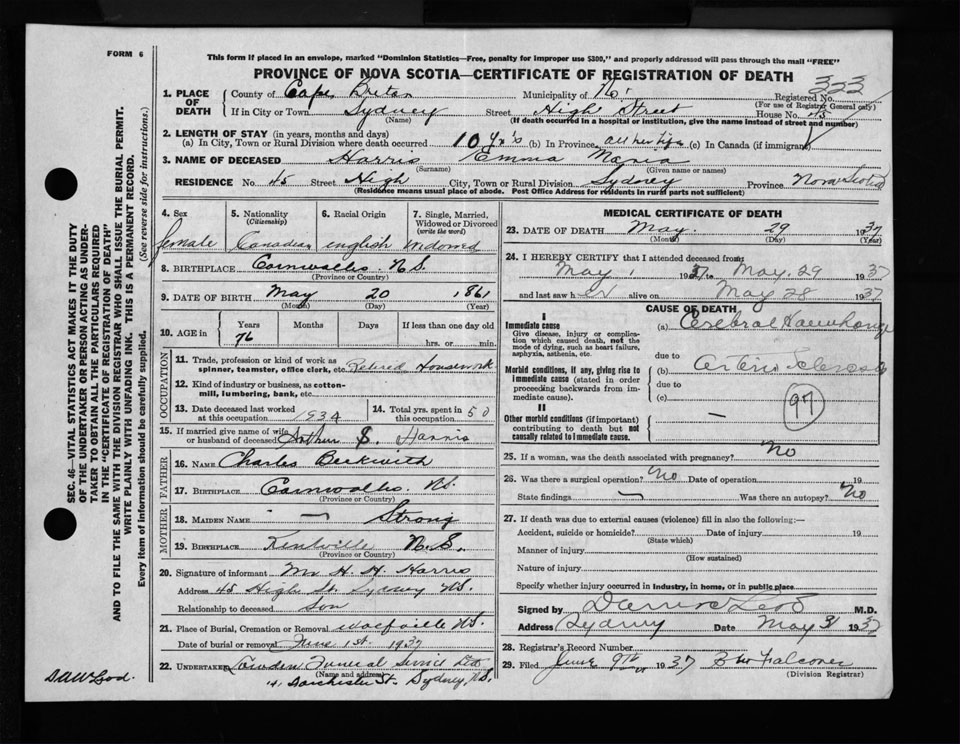 FORM 6
This form if placed in an envelope, marked "Dominion Statistics—Free, penalty for improper use $300," and properly addressed will pass through the mail "FREE"
PROVINCE OF NOVA SCOTIA—CERTIFICATE OF REGISTRATION OF DEATH
323
1. PLACE OF DEATH County of Cape Breton Municipality of Registered No.
(For use of Registrar General only)
If in City or Town Sydney Street High Street House No. 45
(Name) (If death occurred in a hospital or institution, give the name instead of street and number)
2. LENGTH OF STAY (in years, months and days)
(a) In City, Town or Rural Division where death occurred 10 Yrs (b) In Province, all her life (c) In Canada (if immigrant)
3. NAME OF DECEASED Harris Emma Maria
(Surname) (Given name or names)
RESIDENCE No. 45 Street High City, Town or Rural Division Sydney Province Nova Scotia
(Residence means usual place of abode. Post Office Address for residents in rural parts not sufficient)
4. Sex female
5. Nationality (Citizenship) Canadian
6. Racial Origin english
7. Single, Married, Widowed or Divorced (write the word) Widowed
8. BIRTHPLACE Cornwallis N.S.
(Province or Country)
9. DATE OF BIRTH May 20 1861
(Month) (Day) (Year)
10. AGE in Years 76 Months Days If less than one day hrs. or min.
OCCUPATION
11. Trade, profession or kind of work as spinner, teamster, office clerk, etc. Retired Housework
12. Kind of industry or business, as cotton-mill, lumbering, bank, etc.
13. Date deceased last worked at this occupation 1934
14. Total yrs. spent in this occupation 50
15. If married give name of wife or husband of deceased Arthur S. Harris
FATHER
16. NAME Charles Beckwith
17. BIRTHPLACE Cornwallis N.S.
(Province or Country)
MOTHER
18. MAIDEN NAME — Strong
19. BIRTHPLACE Kentville N.S.
(Province or Country)
20. Signature of informant Mr H. H. Harris
Address 45 High St. Sydney NS.
Relationship to deceased Son
21. Place of Burial, Cremation or Removal Wolfville NS.
Date of burial or removal June 1st 1937
22. UNDERTAKER Funeral Service Ltd
(Name and address)
Dorchester St. Sydney, N.S.
MEDICAL CERTIFICATE OF DEATH
23. DATE OF DEATH May 29 1937
(Month) (Day) (Year)
24. I HEREBY CERTIFY that I attended deceased from
May 1 1937 to May 29 1937
and last saw her alive on May 28 1937
CAUSE OF DEATH
I
Immediate cause
Give disease, injury or complication which caused death, not the mode of dying, such as heart failure, asphyxia, asthenia, etc.
(a) Cerebral Haemorrhage
due to
Morbid conditions, if any, giving rise to immediate cause (stated in order proceeding backwards from immediate cause).
(b) Arterio Sclerosis
due to
(c)
97
II
Other morbid conditions (if important) contributing to death but not causally related to immediate cause.
—
25. If a woman, was the death associated with pregnancy? No
26. Was there a surgical operation? No Date of operation 19
State findings — Was there an autopsy? No
27. If death was due to external causes (violence) fill in also the following:—
Accident, suicide or homicide? Date of injury 19
(State which)
Manner of injury
(How sustained)
Nature of injury
Specify whether injury occurred in industry, in home, or in public place
Signed by M.D.
Address Sydney Date May 31 1937
28. Registrar's Record Number
29. Filed June 9th 1937 Falconer
(Division Registrar)
SEC. 46—VITAL STATISTICS ACT MAKES IT THE DUTY
OF THE UNDERTAKER OR PERSON ACTING AS UNDER-
TAKER TO OBTAIN ALL THE PARTICULARS REQUIRED
IN THE "CERTIFICATE OF REGISTRATION OF DEATH"
AND TO FILE THE SAME WITH THE DIVISION REGISTRAR WHO SHALL ISSUE THE BURIAL PERMIT.
WRITE PLAINLY WITH UNFADING INK. THIS IS A PERMANENT RECORD.
Every item of information should be carefully supplied. (See reverse side for instructions.)